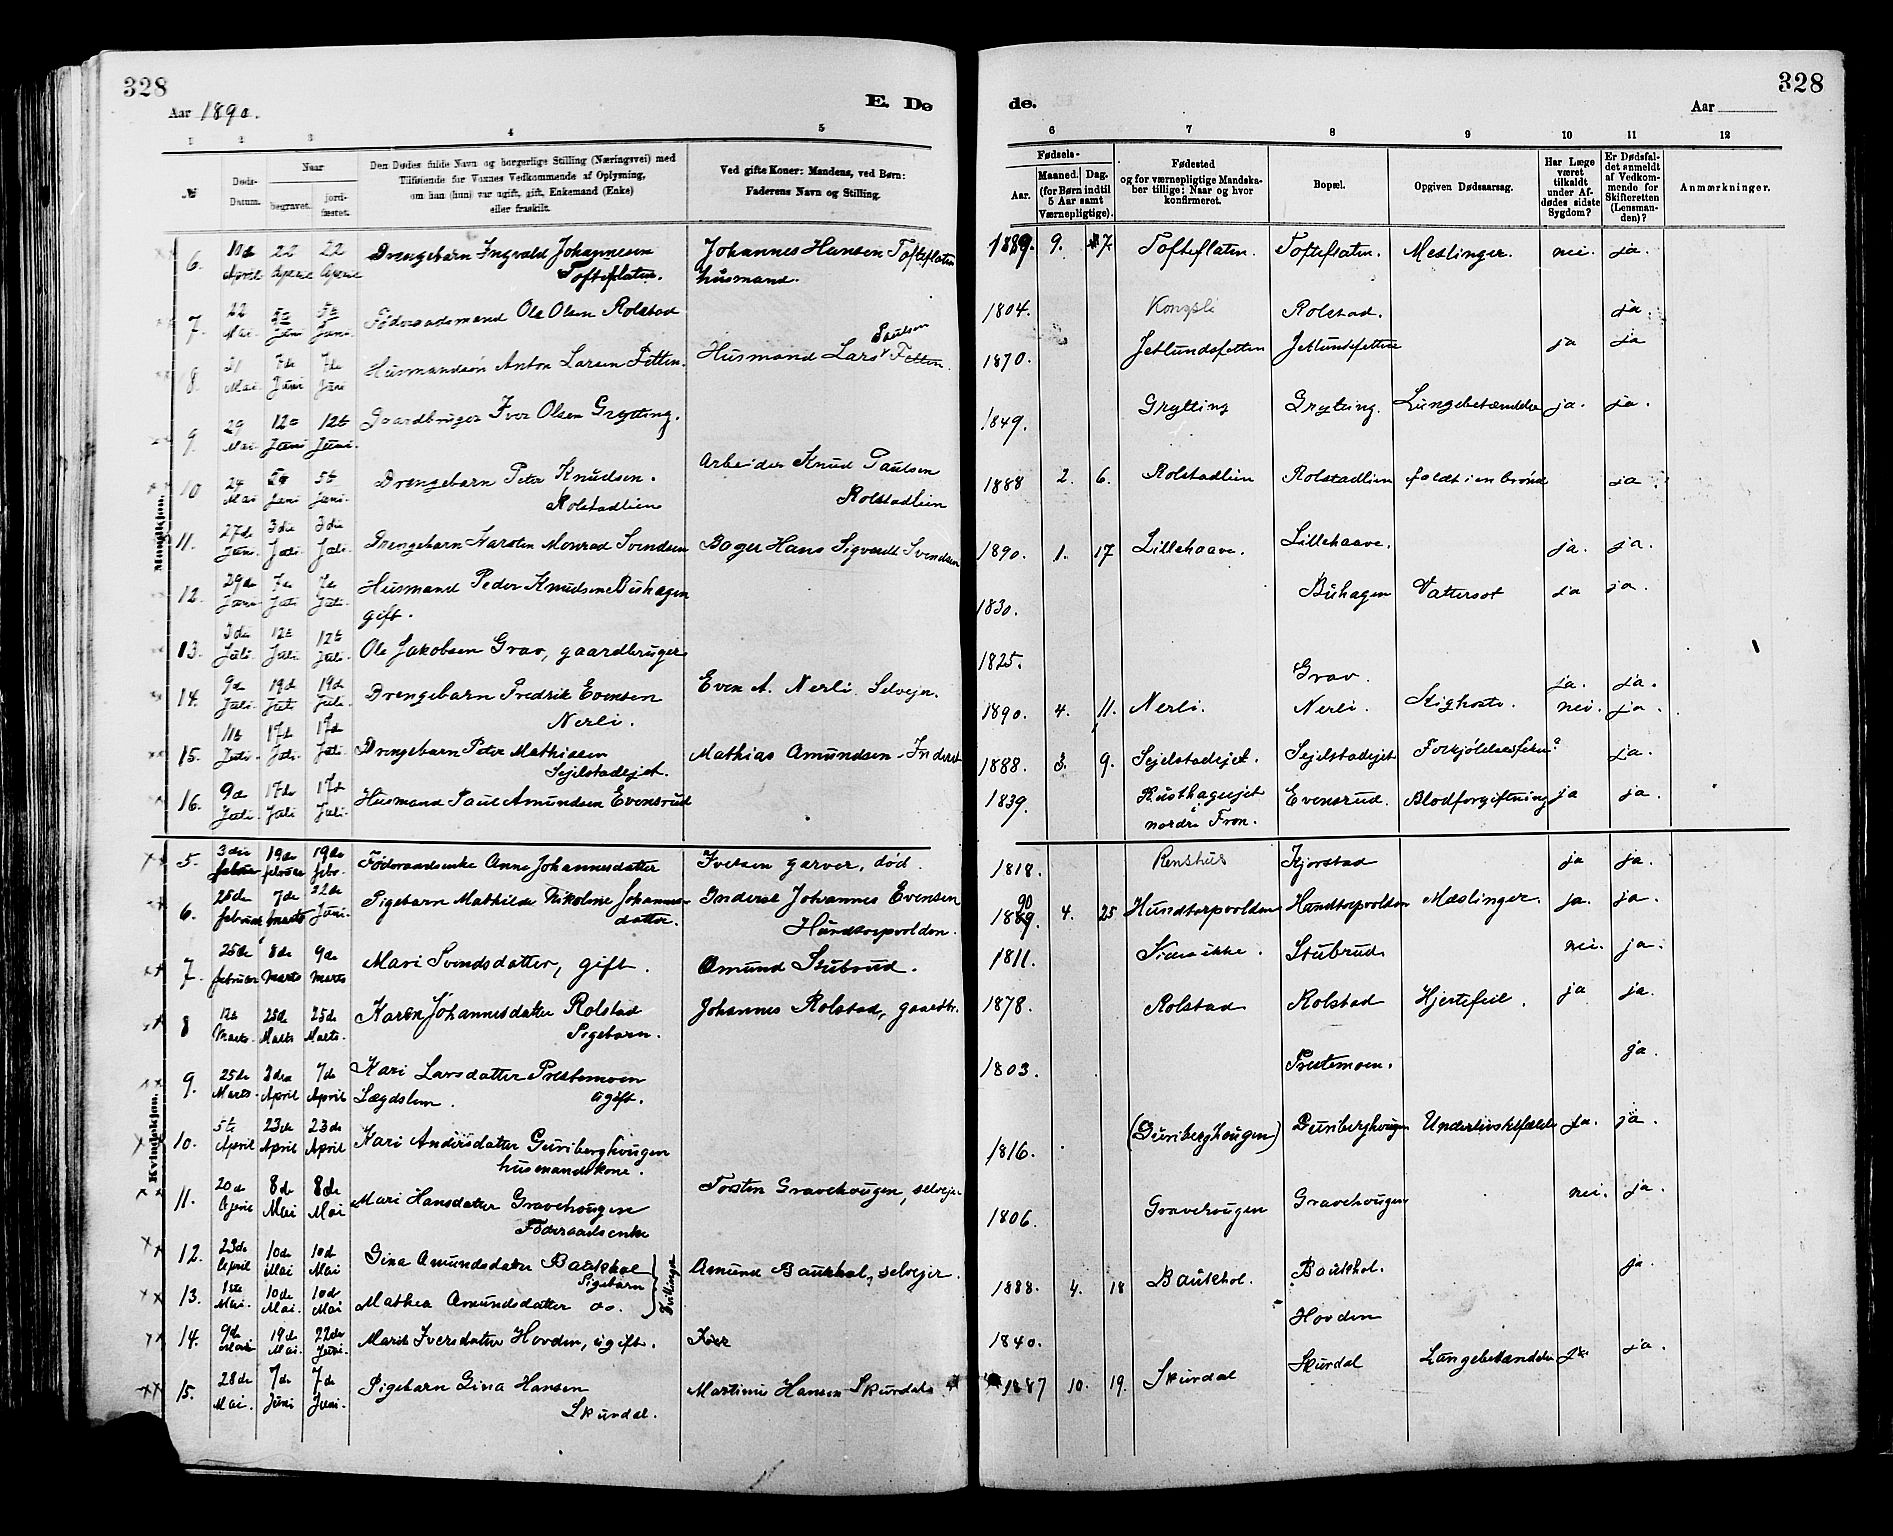 328
Aar 1890.
E. Dø
de.
Aar
328
1 2 3 4 5
6 7 8 9 10 11 12
№
Døds-Datum.
Naar
begravet.
jordfæstet.
Den Dødes fulde Navn og borgerlige Stilling (Næringsvei) med
Tilføiende for Voxnes Vedkommende af Oplysning,
om han (hun) var ugift, gift, Enkemand (Enke)
eller fraskilt.
Ved gifte Koner: Mandens, ved Børn:
Faderens Navn og Stilling.
Fødsels-
Aar.
Maaned. Dag.
(for Børn indtil
5 Aar samt
Værnepligtige).
Fødested
og for værnepligtige Mandska-
ber tillige: Naar og hvor
konfirmeret.
Bopæl.
Opgiven Dødsaarsag.
Har Læge
været
tilkaldt
under Af-
dødes sidste
Sygdom?
Er Dødsfal-
det anmeldt
af Vedkom-
mende for
Skifteretten
(Lensman-
den)?
Anmærkninger.
Mandkjøn.
6. 11te April 22 April 22 April Drengebarn Ingvald Johannesen Tofteflaten. Johannes Hansen Tofteflaten husmand. 1889. 9. 7. Tofteflaten. Tofteflaten. Meslinger. nei. ja.
7. 22 Mai 5te Juni 5te Juni. Föderaadsmand Ole Olsen Rolstad 1804. Kongsli Rolstad. ja.
8. 21 Mai. 7de Juni 7de Juni Husmandssön Anton Larsen Fetten. Husmand Lars Paulsen Fetten. 1870. Jetlundsfetten Jetlundsfetten ja ja
9. 29 Mai. 12te Juni 12te Juni. Gaardbruger Iver Olsen Grytting. 1849. Grytting Grytting. Lungebetændelse ja. ja.
10 24 Mai 5te Juni 5te Juni. Drengebarn Peter Knudsen. Rolstadlien Arbeider Knud Paulsen Rolstadlien 1888 2. 6. Rolstadlien Rolstadlien faldt i en brönd ja.
11. 27de Juni 3die Juli. 3die Juli. Drengebarn Karsten Monrad Svendsen Bager Hans Sigvardt Svendsen 1890. 1. 17 Lillehaave. Lillehaave. ja. ja.
12. 29de Juni 7de Juli 7de Juli. Husmand Peder Knudsen Buhagen gift. 1830. Buhagen Vattersot ja ja.
13. 3die Juli. 12te Juli 12te Juli. Ole Jakobsen Grav, gaardbruger 1825. Grav. ja. ja.
14. 9de Juli. 19de Juli 19de Juli. Drengebarn Fredrik Evensen Nerli. Even A. Nerli. Selvejer. 1890. 4. 11. Nerli. Nerli. Kighoste. nei. ja.
15. 11te Juli. 17de Juli. 17de Juli. Drengebarn Peter Mathisen Sejelstadejet. Mathias Amundsen - Inderst 1888. 3. 9. Sejelstadejet. Sejelstadejet Forkjølelsesfeber? ja.
16. 9de Juli. 17de Juli 17de Juli. Husmand Paul Amundsen Evensrud 1839. nordre Fron. Evensrud. Blodforgiftning ja ja.
Kvindekjøn.
5. 3die februar 19de februar 19de febr. Föderaadsenke Anne Johannesdatter Iversen garver, död. 1818. Renshus Kjorstad ja ja.
6. 26de februar 7de marts 22de Juni. Pigebarn Mathilde Nikoline Johannesdatter. Inderst Johannes Evensen Hundtorpvolden. 1889. 90 4. 25 Hundtorpvolden Hundtorpvolden Mæslinger. ja. ja.
7. 25de februar 8de Marts 9de marts Mari Svendsdatter, gift. Amund Stubrud. 1811. Vides ikke. Stubrud nei. ja.
8 12te Marts. 25de Marts 25de Marts. Karen Johannesdatter Rolstad Pigebarn. Johannes Rolstad, gaardbr. 1878. Rolstad Rolstad Hjertefeil. ja ja.
9. 25de Marts. 3die April 7de April Kari Larsdatter Prestemoen Lægdslem. ugift. 1803. Prestemoen. ja.
10. 5te April 23de April 23de April Kari Andersdatter Guriberghougen husmandskone. 1816. (Guriberghougen) Guriberghougen Underlivstilfælde ja. ja.
11. 20de April 8de Mai 8de Mai Mari Hansdatter Gravehougen Föderaadsenke Torsten Gravehougen, selvejer 1806. Gravehougen Gravehougen nei. ja.
12. 23de April 10de Mai 10de Mai Gina Amundsdatter Baukhol Pigebarn Tvillinger Amund Baukhol, selvejer. 1888. 4. 18 Baukhol. Baukhol. ja.
13. 1ste Mai. 10de Mai. 10de Mai Mathea Amundsdatter do.
14. 9de Mai 19de Mai. 22de Juni. Marit Iversdatter Hovden, ugift. Iver 1840. Hovden
15. 28de Mai. 7de Juni 7de Juni. Pigebarn Gina Hansen Skurdal. Martinus Hansen Skurdal 1887 10. 19. Skurdal Skurdal Lungebetændelse ja. ja.